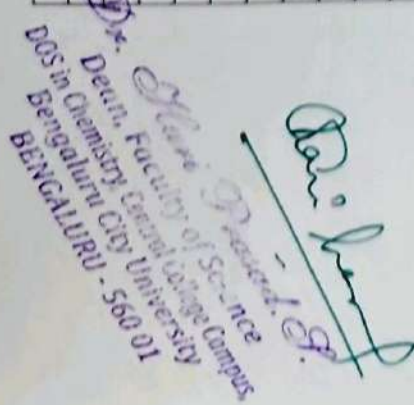 Dr. Hari Prasad. S.
Dean, Faculty of Science
DOS in Chemistry, Central College Campus,
Bengaluru City University
BENGALURU - 560 01